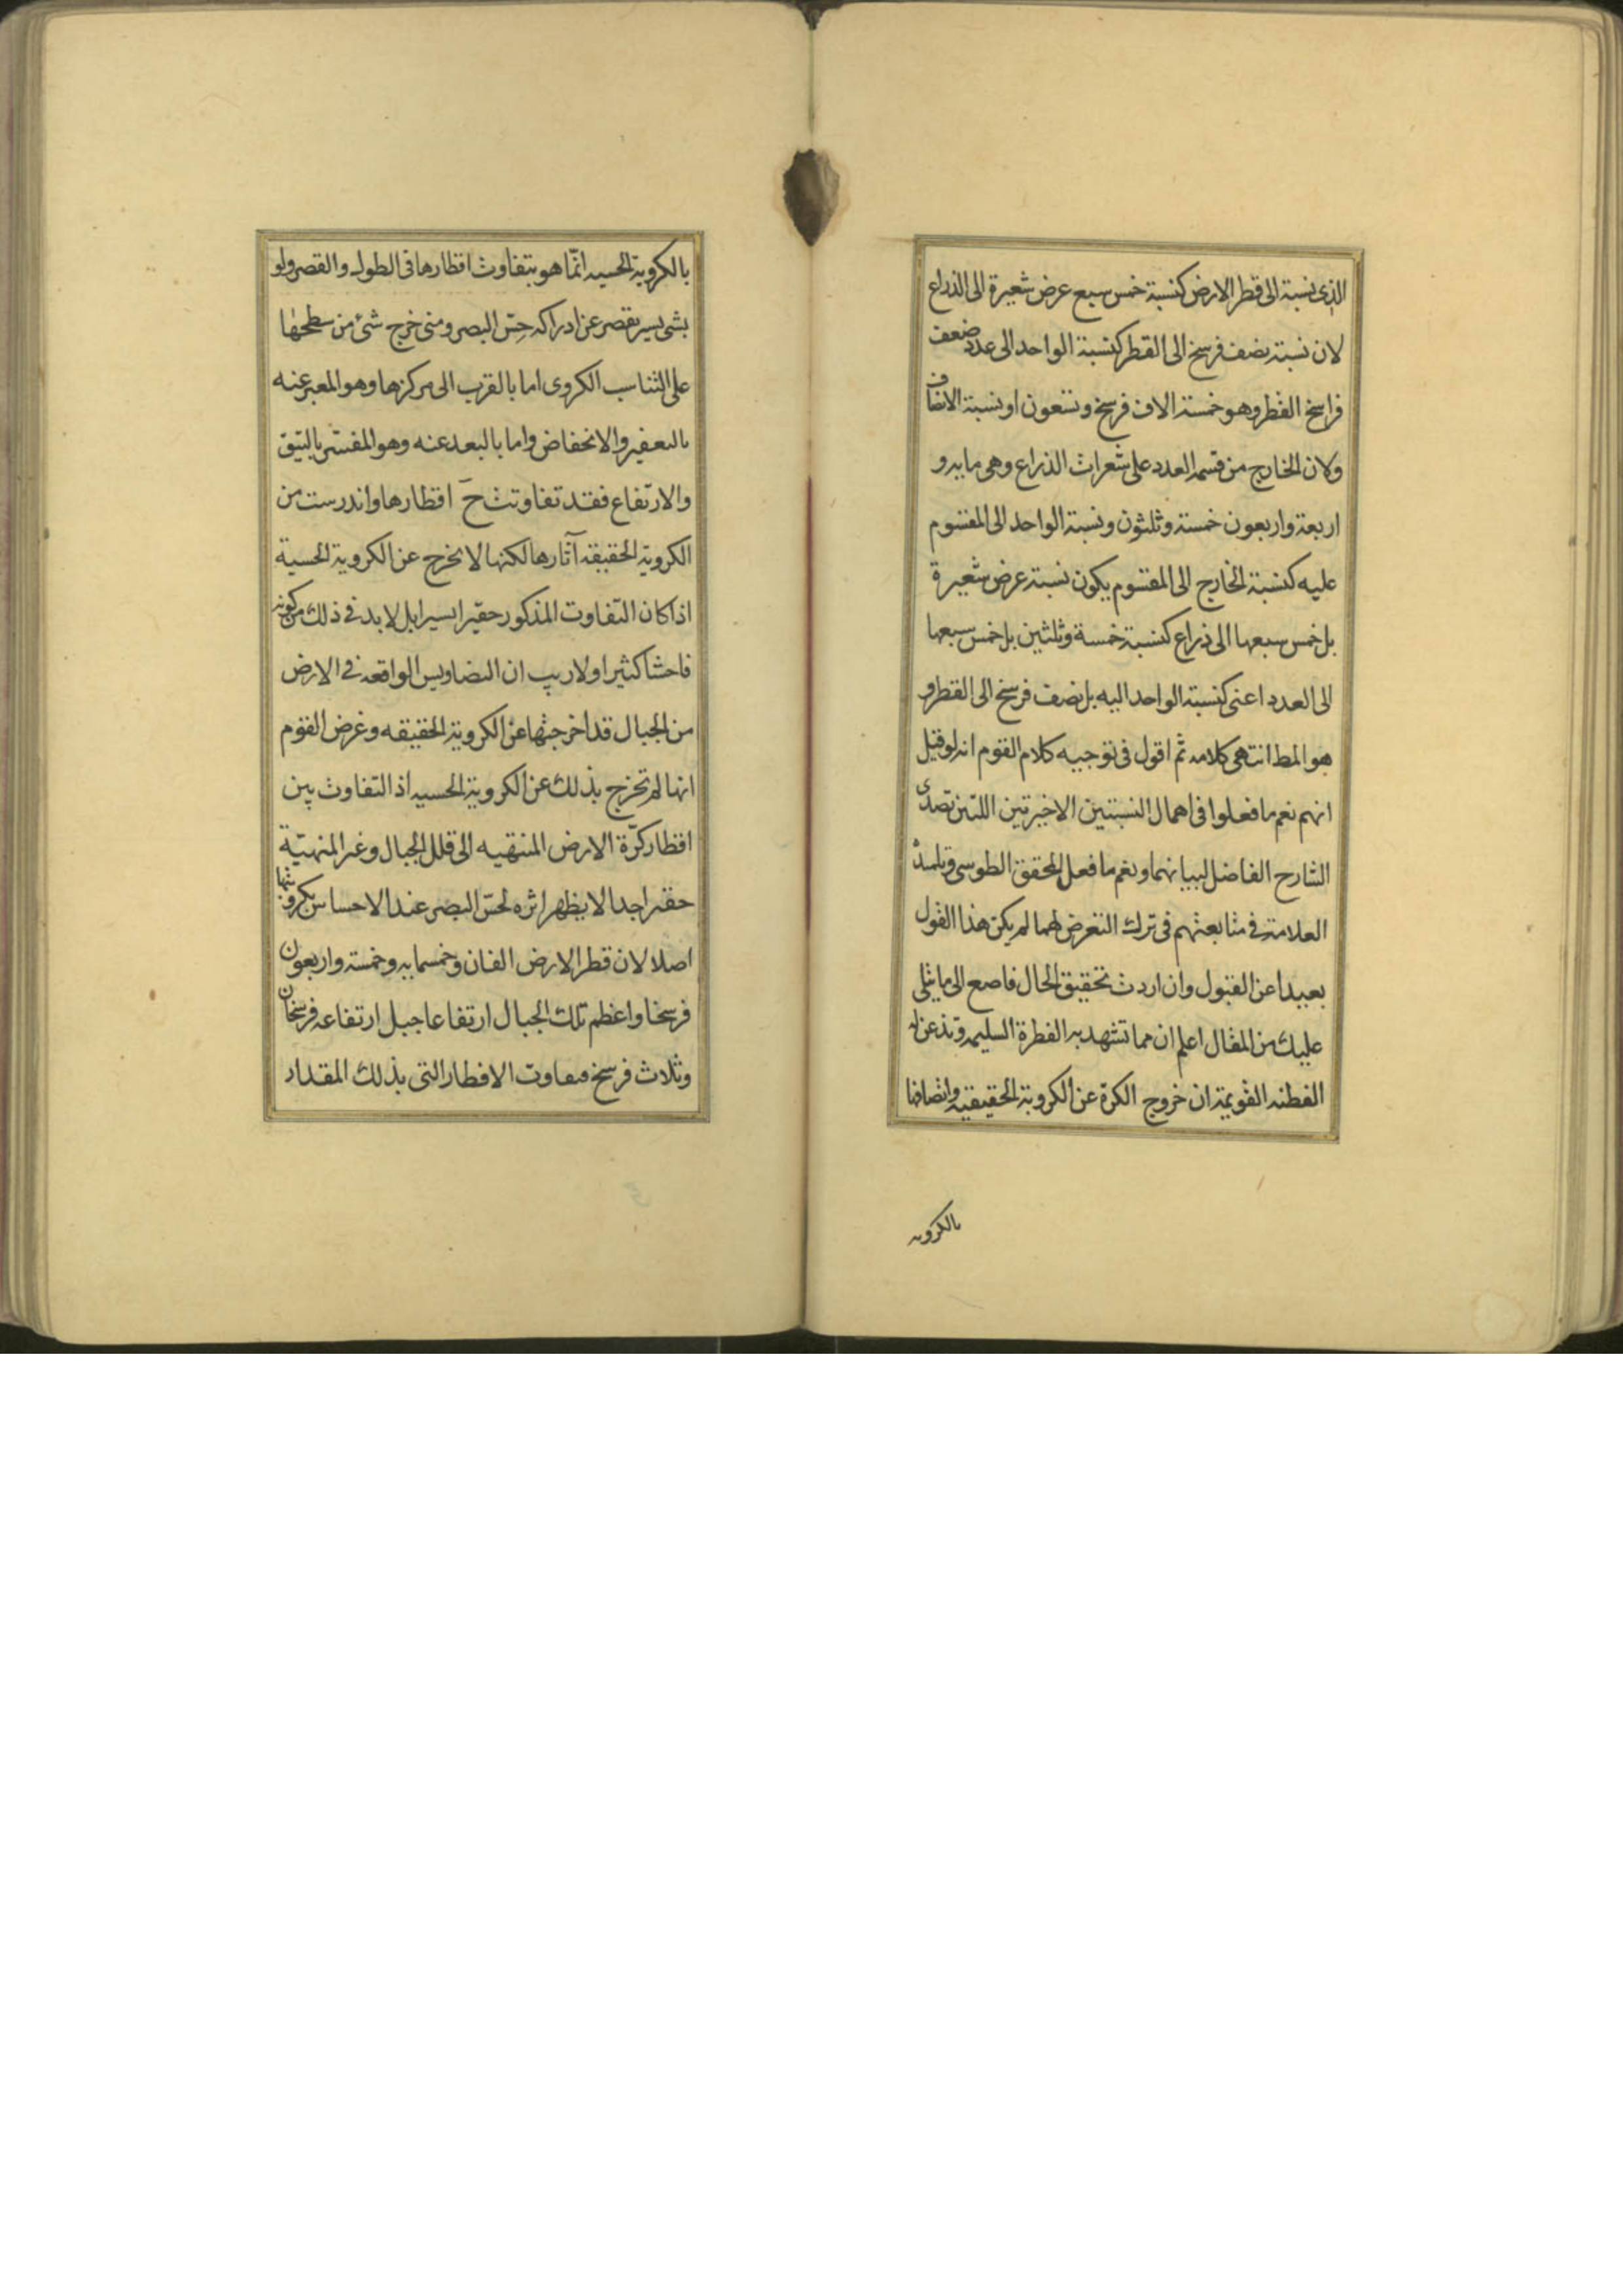 الذى نسبة الى قطر الارض كنسبة خمس سبع عرض شعيرة الى الذراع
لان نسبة نصف فرسخ الى القطر كنسبة الواحد الى عدد ضعف
فراسخ القطر وهو خمسة الاف فرسخ وتسعون او نسبة الانصاف
ولان الخارج من قسمة العدد على شعرات الذراع وهى مايه و
اربعة واربعون خمسة وثلثون ونسبة الواحد الى المقسوم
عليه كنسبة الخارج الى المقسوم يكون نسبة عرض شعيرة
بل خمس سبعها الى ذراع كنسبة خمسة وثلثين بل خمس سبعها
الى العدد اعنى كنسبة الواحد اليه بل نصف فرسخ الى القطر و
هو المط انتهى كلامه ثم اقول فى توجيه كلام القوم انه لو قيل
انهم نعم ما فعلوا فى اهمال النسبتين الاخيرتين اللتين تصدى
الشارح الفاضل لبيانهما ونعم ما فعل المحقق الطوسى وتلميذه
العلامة فى متابعتهم فى ترك التعرض لهما لم يكن هذا القول
بعيدا عن القبول وان اردت تحقيق الحال فاصغ الى ما يتلى
عليك من المقال اعلم ان مما تشهد به الفطرة السليمة وتذعن له
الفطنه القويمة ان خروج الكرة عن الكروية الحقيقية واتصافها
بالكرويه
بالكروية الحسيه انّما هو بتفاوت اقطارها فى الطول والقصر ولو
بشى يسير يقصر عن ادراكه حسّ البصر ومتى خرج شئ من سطحها
على التناسب الكروى اما بالقرب الى مركزها وهو المعبر عنه
بالتقعير والانخفاض واما بالبعد عنه وهو المفسر بالتنق
والارتفاع فقد تفاوتت ح اقطارها واندرست من
الكروية الحقيقة آثارها لكنها لا يخرج عن الكروية الحسية
اذا كان التفاوت المذكور حقيرا يسيرا بل لا بد فى ذلك من كونه
فاحشا كثيرا ولا ريب ان التضاريس الواقعة فى الارض
من الجبال قد اخرجتها عن الكروية الحقيقه وغرض القوم
انها لم تخرج بذلك عن الكروية الحسيه اذ التفاوت بين
اقطار كرّة الارض المنتهيه الى قلل الجبال وغير المنتهيّة
حقير اجدا لا يظهر اثره لحسّ البصر عند الاحساس بكرويتها
اصلا لان قطر الارض الفان وخمسمايه وخمسة واربعون
فرسخا واعظم تلك الجبال ارتفاعا جبل ارتفاعه فرسخان
وثلاث فرسخ فتفاوت الاقطار التى بذلك المقدار